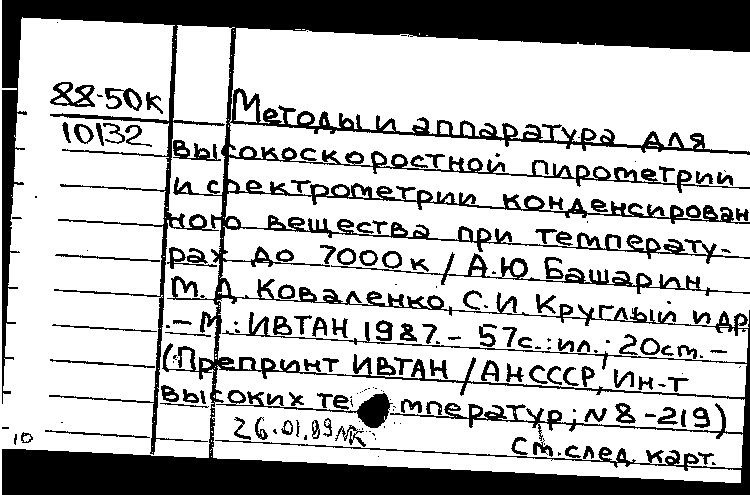 88-50к
10132
Методы и аппаратура для
высокоскоростной пирометрии
и спектрометрии конденсирован
ного вещества при температу-
рах до 7000к / А.Ю. Башарин,
М.Д. Коваленко, С.И. Круглый и др
.– М.: ИВТАН, 1987. – 57с.: ил.; 20ст. –
(Препринт ИВТАН / АНСССР, Ин-т
высоких те мператур; N 8-219)
26.01.89
Ст. след. карт.
10